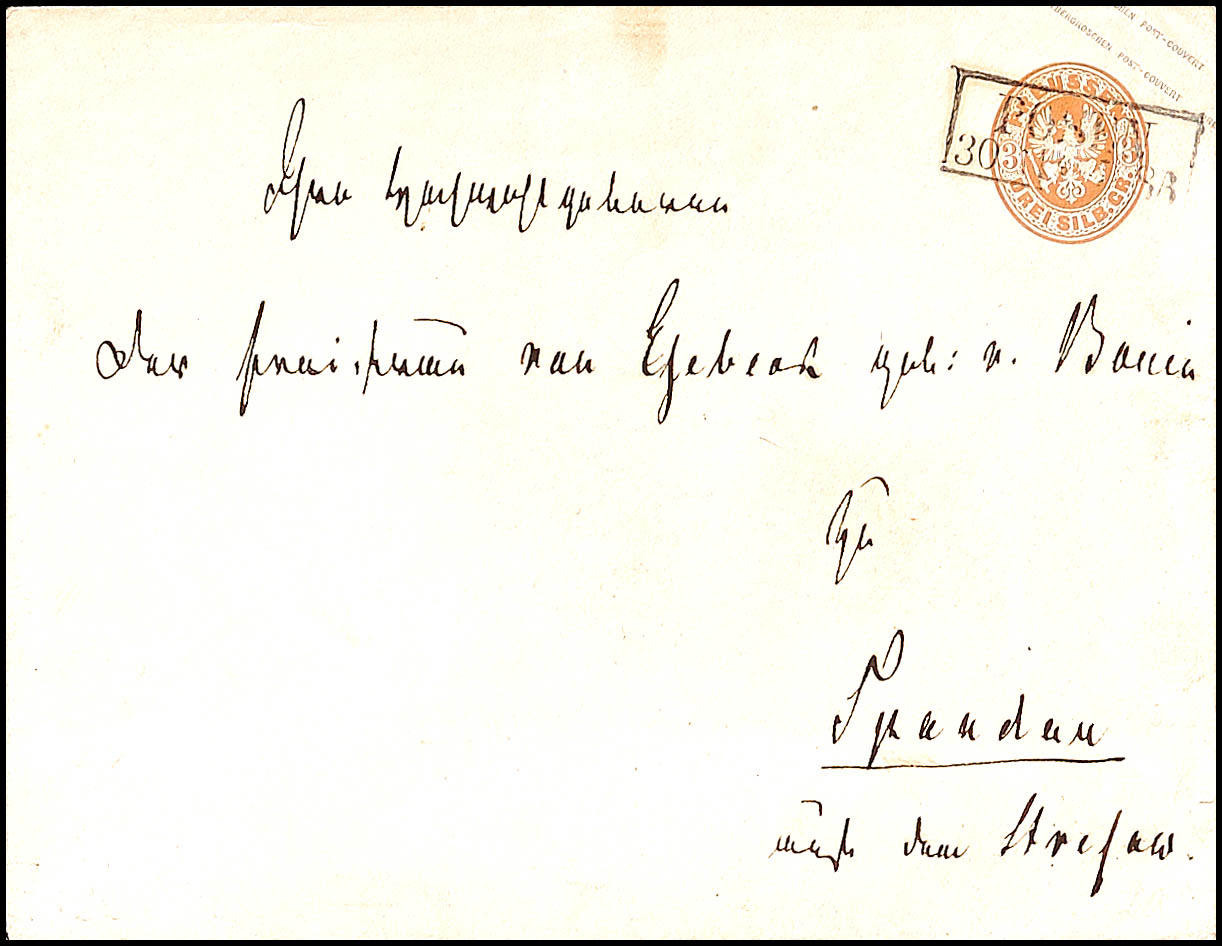 BERGROSCHEN POST-COUVERT
POST-COUVERT
PREUSSEN
3 3
DREI SILB. GR.
30
Ihro Hochwohlgeboren
Der Frei-Frau von Esebeck geb: v. Bonin
zu
Spandau
auf dem Stresow.